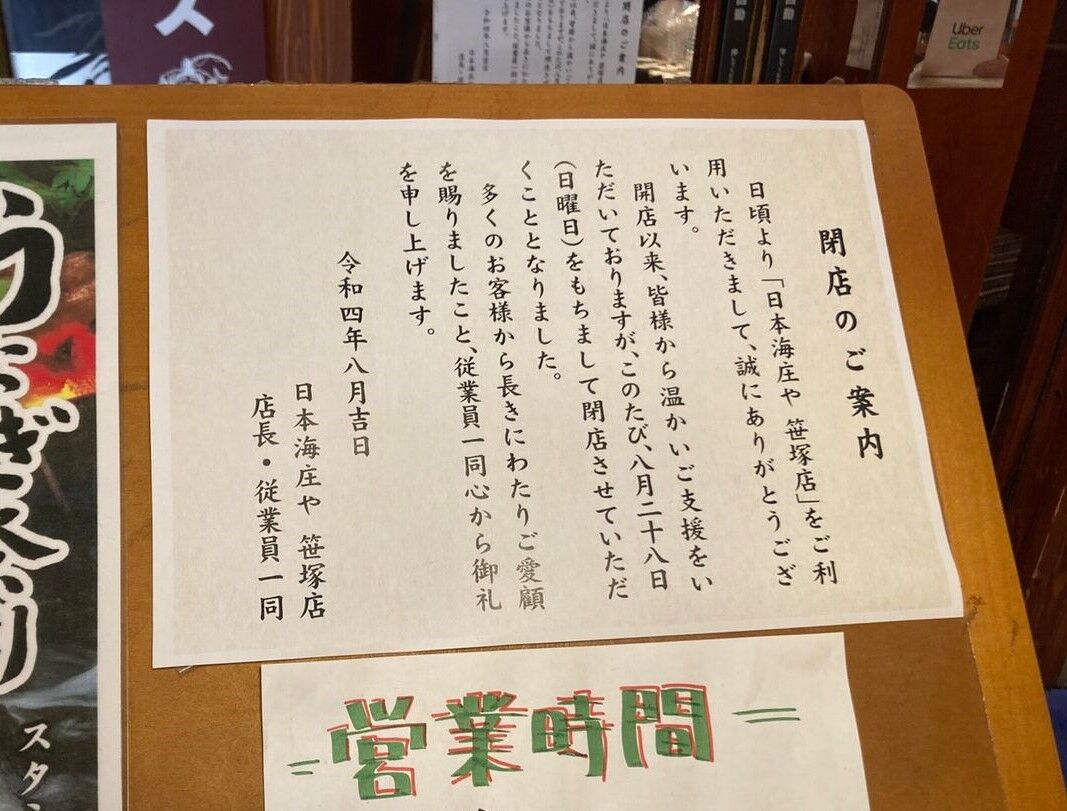 閉店のご案内
日頃より「日本海庄や 笹塚店」をご利
用いただきまして、誠にありがとうござ
います。
開店以来、皆様から温かいご支援をい
ただいておりますが、このたび、八月二十八日
(日曜日)をもちまして閉店させていただ
くこととなりました。
多くのお客様から長きにわたりご愛顧
を賜りましたこと、従業員一同心から御礼
を申し上げます。
令和四年八月吉日
日本海庄や 笹塚店
店長・従業員一同
=営業時間=
うなぎ祭り
スタ
ス
閉店のご案内
Uber
Eats